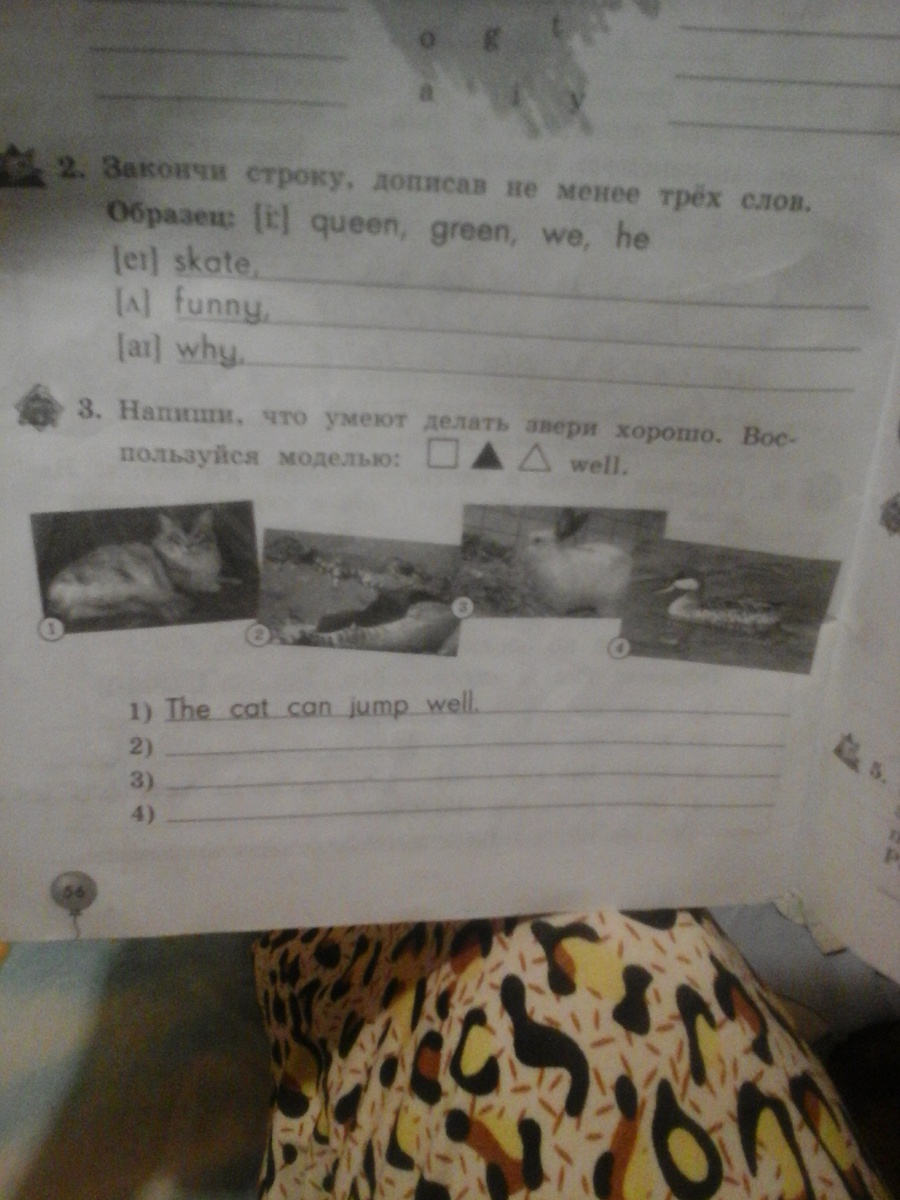 o g t
a i y
2. Закончи строку, дописав не менее трёх слов.
Образец: [i:] queen, green, we, he
[eɪ] skate,
[ʌ] funny,
[aɪ] why,
3. Напиши, что умеют делать звери хорошо. Вос-
пользуйся моделью: □ ▲ △ well.
1 2 3 4
1) The cat can jump well.
2)
3)
4)
5.
56